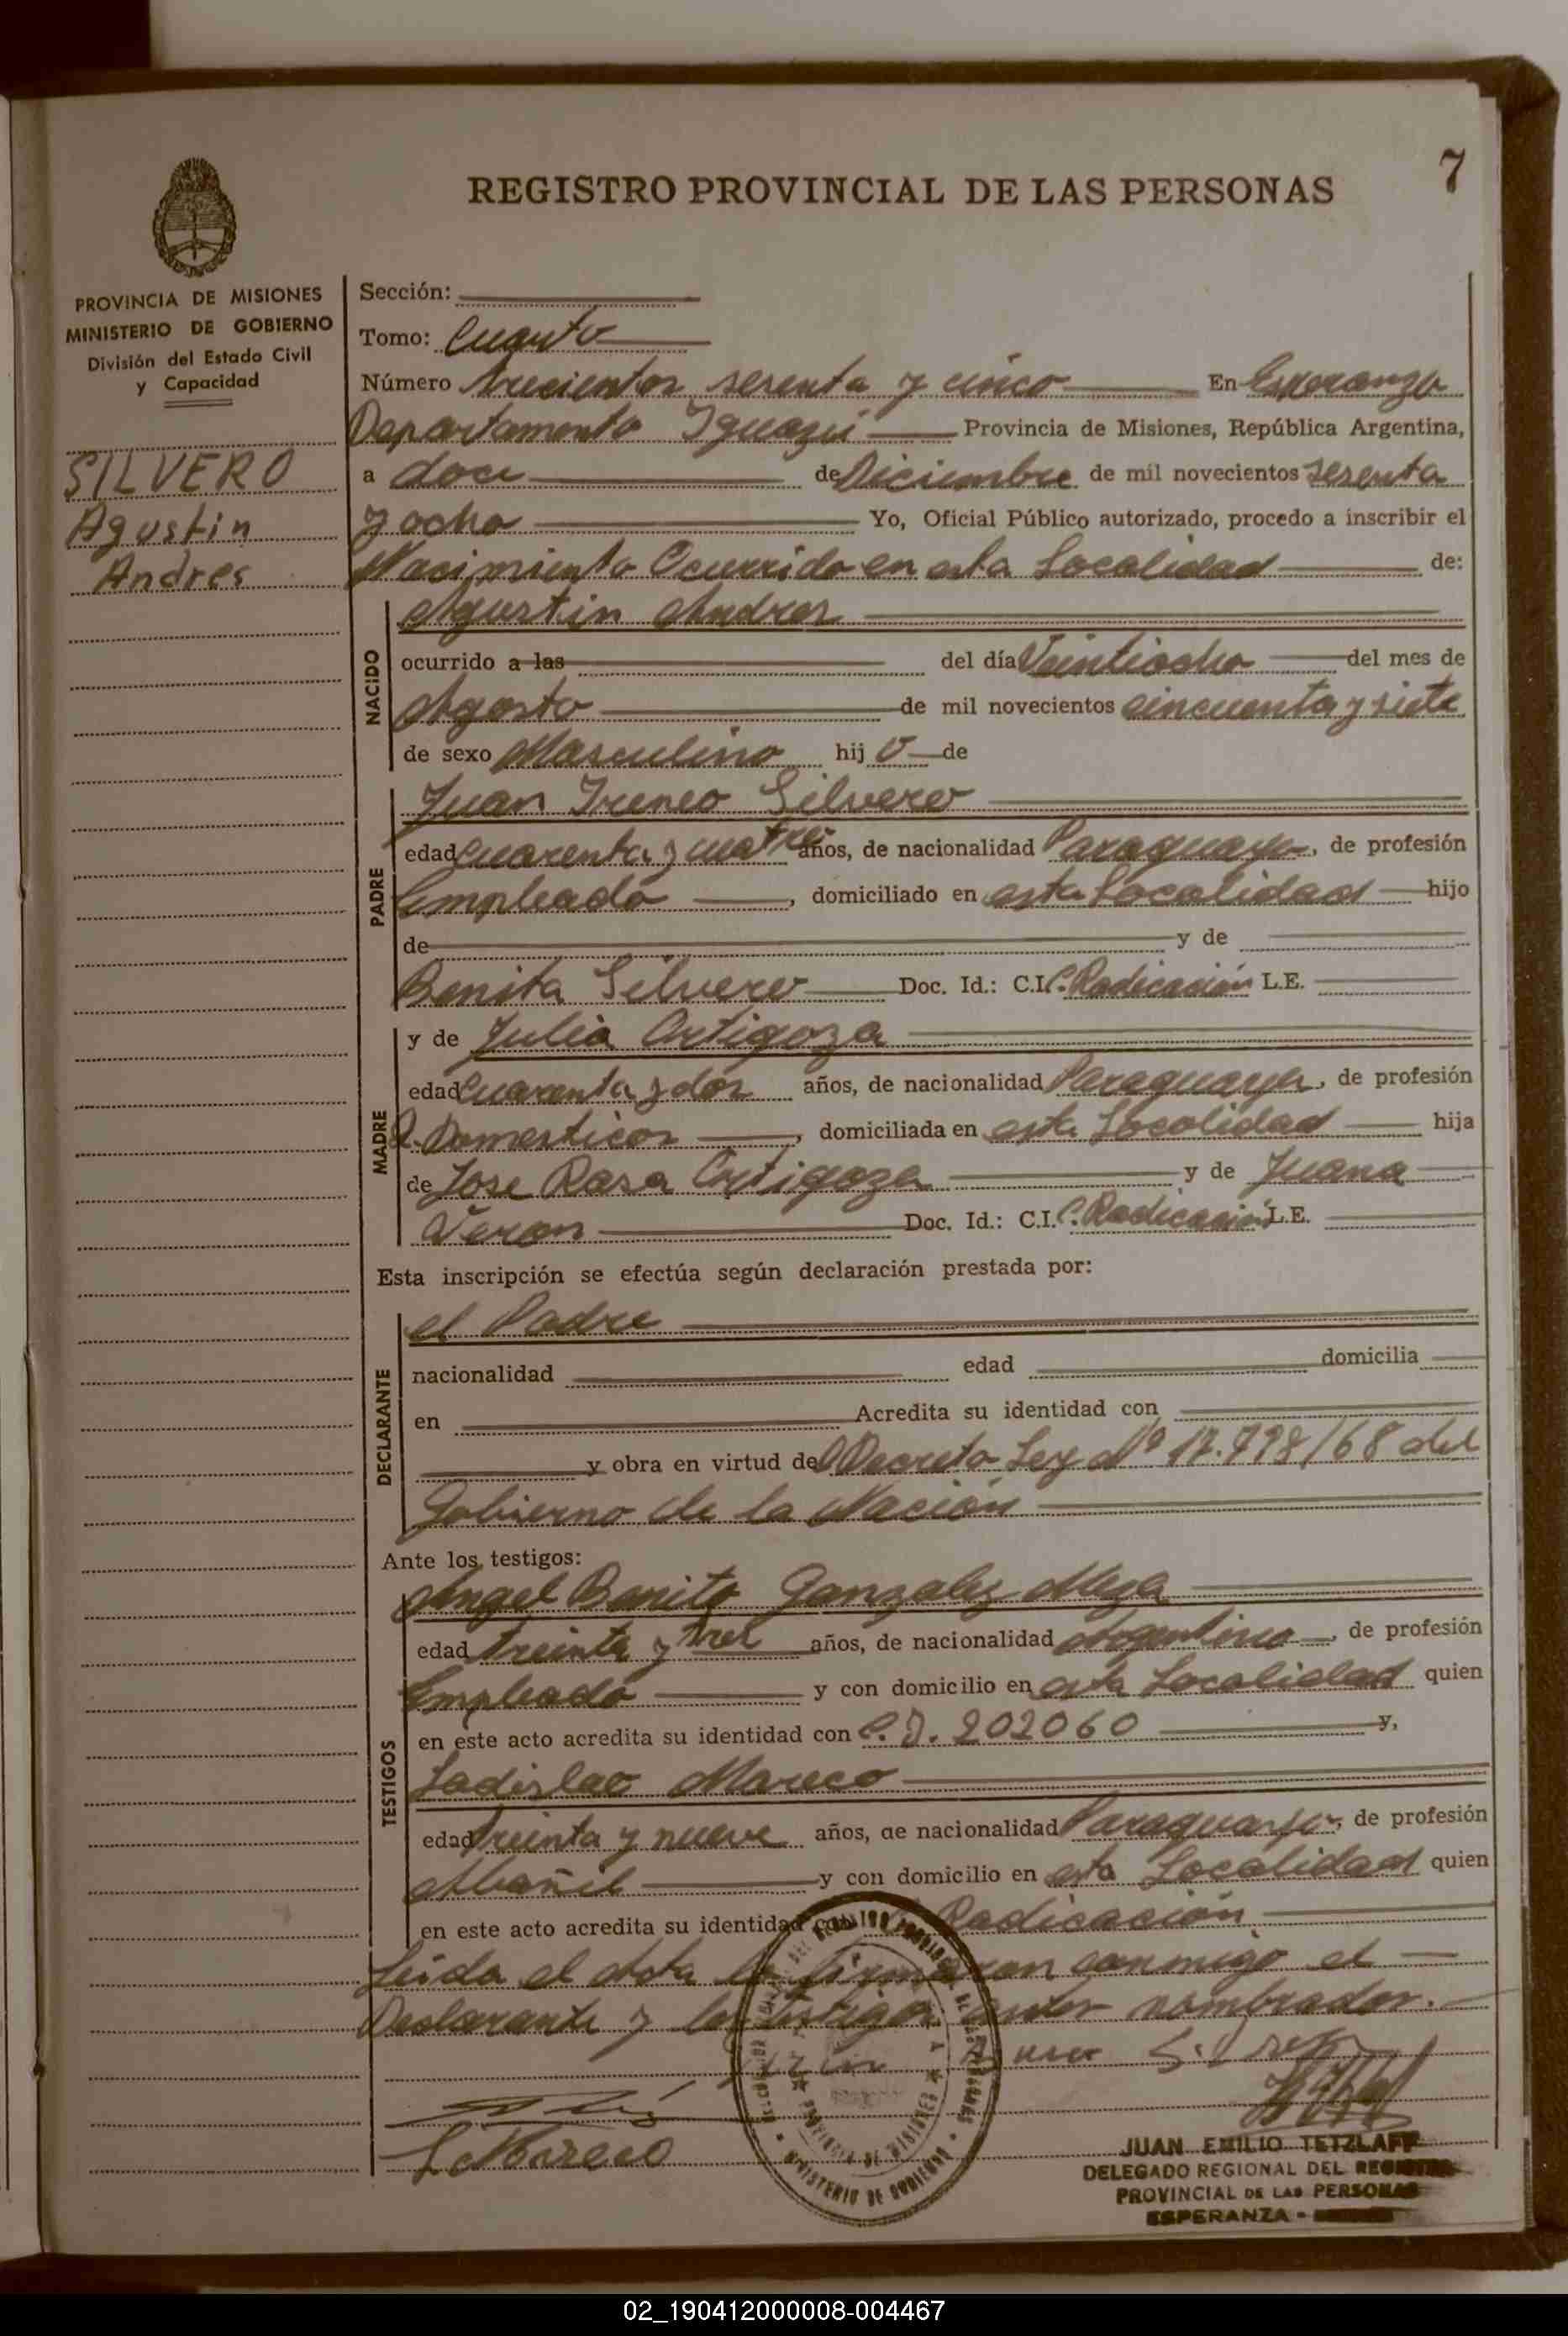 7
REGISTRO PROVINCIAL DE LAS PERSONAS
PROVINCIA DE MISIONES
MINISTERIO DE GOBIERNO
División del Estado Civil
y Capacidad
SILVERO
Agustin
Andres
Sección:
Tomo: Cuarto
Número trecientos sesenta y cinco En Esperanza
Departamento Iguazú Provincia de Misiones, República Argentina,
a doce de Diciembre de mil novecientos sesenta
y ocho Yo, Oficial Público autorizado, procedo a inscribir el
Nacimiento Ocurrido en esta Localidad de:
NACIDO
Agustin Andres
ocurrido a las del día Veintiocho del mes de
Agosto de mil novecientos cincuenta y siete
de sexo Masculino hij o de
PADRE
Juan Ireneo Silvero
edad cuarenta y cuatro años, de nacionalidad Paraguaya, de profesión
Empleado, domiciliado en esta Localidad hijo
de y de
Benita Silvero Doc. Id.: C.I. C. Radicación L.E.
MADRE
y de Julia Ortigoza
edad cuarenta y dos años, de nacionalidad Paraguaya, de profesión
Q. Domesticos, domiciliada en esta Localidad hija
de Jose Rosa Ortigoza y de Juana
Veron Doc. Id.: C.I. C. Radicación L.E.
Esta inscripción se efectúa según declaración prestada por:
DECLARANTE
el Padre
nacionalidad edad domicilia
en Acredita su identidad con
y obra en virtud del Decreto Ley Nº 17.798/68 del
Gobierno de la Nación
Ante los testigos:
TESTIGOS
Angel Gonzalez Meza
edad treinta y tres años, de nacionalidad Argentino, de profesión
Empleado y con domicilio en esta Localidad quien
en este acto acredita su identidad con C.I. 202060 y,
Ladislao Mareco
edad treinta y nueve años, de nacionalidad Paraguayo, de profesión
Albañil y con domicilio en esta Localidad quien
en este acto acredita su identidad con Radicación
Leida el Acta la firmaron conmigo el
Declarante y los testigos antes nombrados.
L Mareco
MINISTERIO DE GOBIERNO
PROVINCIA DE MISIONES
JUAN EMILIO TETZLAFF
DELEGADO REGIONAL DEL REGISTRO
PROVINCIAL DE LAS PERSONAS
ESPERANZA -
02_190412000008-004467